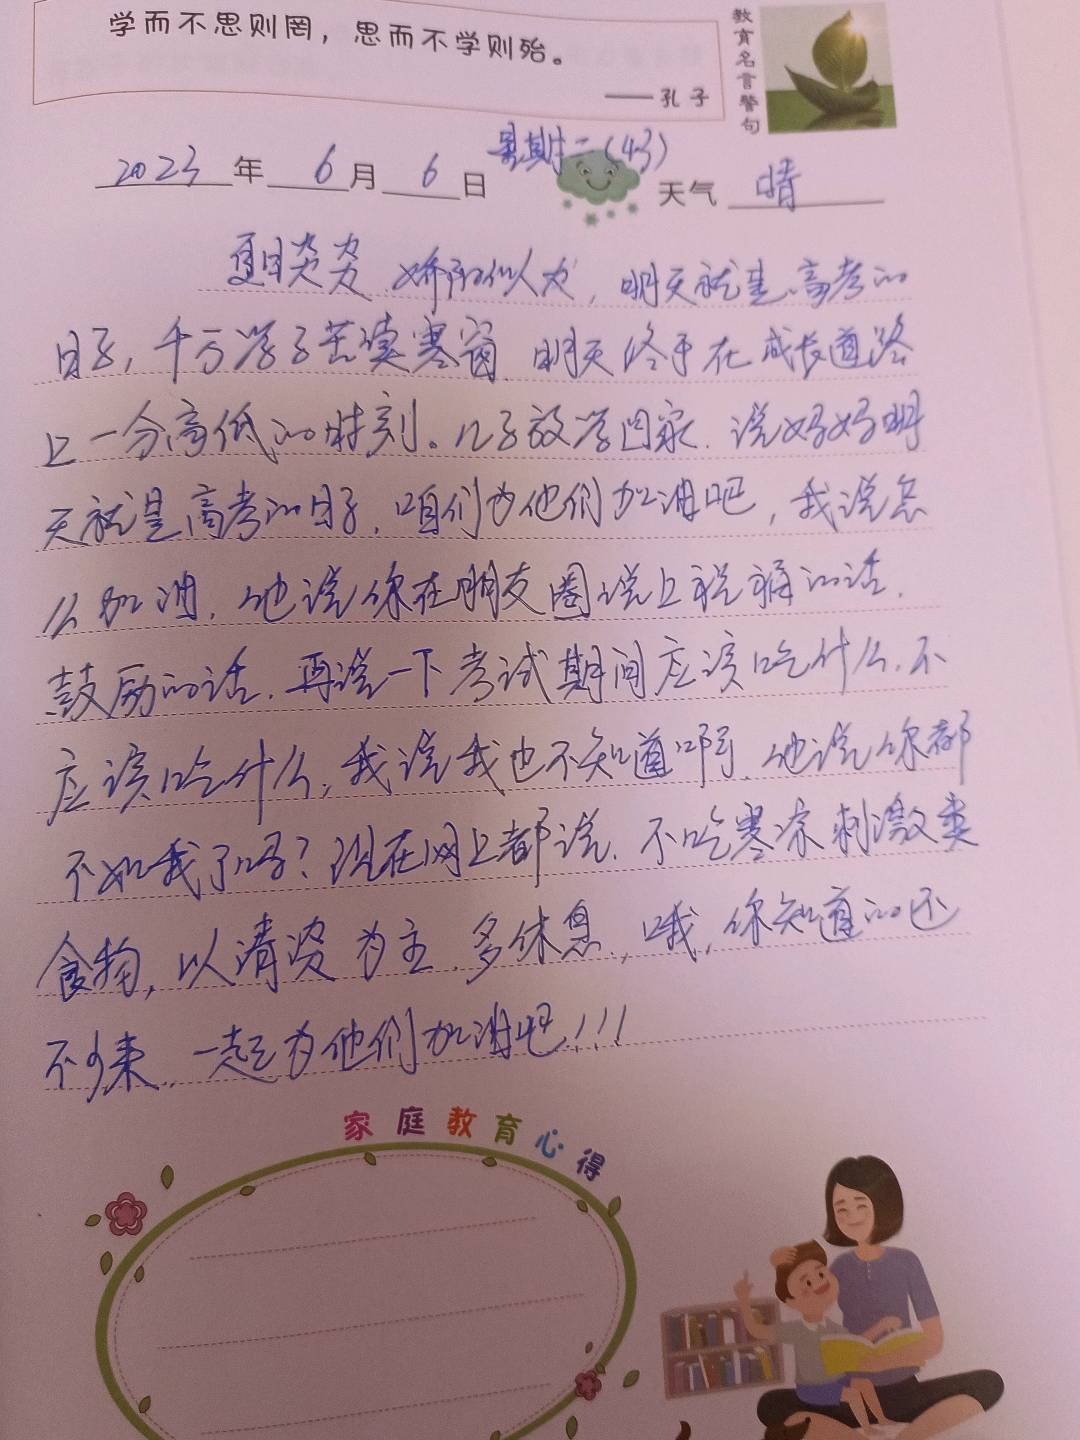 学而不思则罔，思而不学则殆。
——孔子
教育名言警句
2023年6月6日 星期二（43） 天气 晴
夏日炎炎 娇阳似火，明天就是高考的
日子，千万学子苦读寒窗 明天终于在成长道路
上一分高低的时刻。儿子放学回家.说妈妈明
天就是高考的日子，咱们为他们加油吧，我说怎
么加油，他说你在朋友圈说上祝福的话.
鼓励的话，再说一下考试期间应该吃什么.不
应该吃什么，我说我也不知道啊，他说你都
不如我了吗？现在网上都说.不吃寒凉刺激类
食物，以清淡为主.多休息，哦，你知道的还
不少来，一起为他们加油吧！！！
家庭教育心得